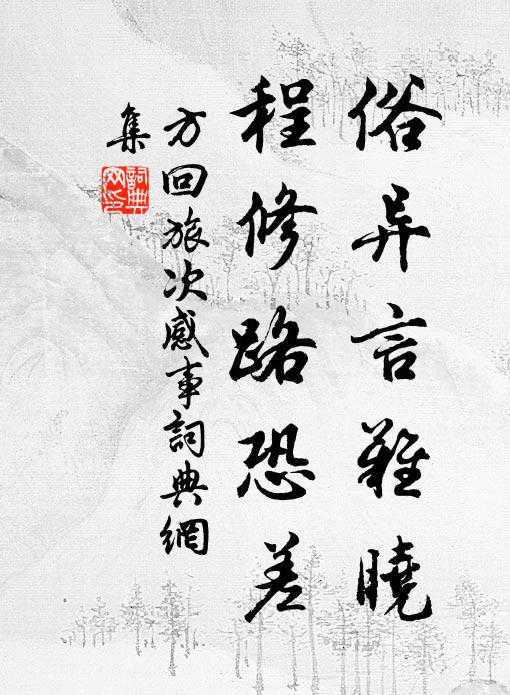 俗异言難曉
程修路恐差
方回旅次感事詞典網
集
詞典
网印